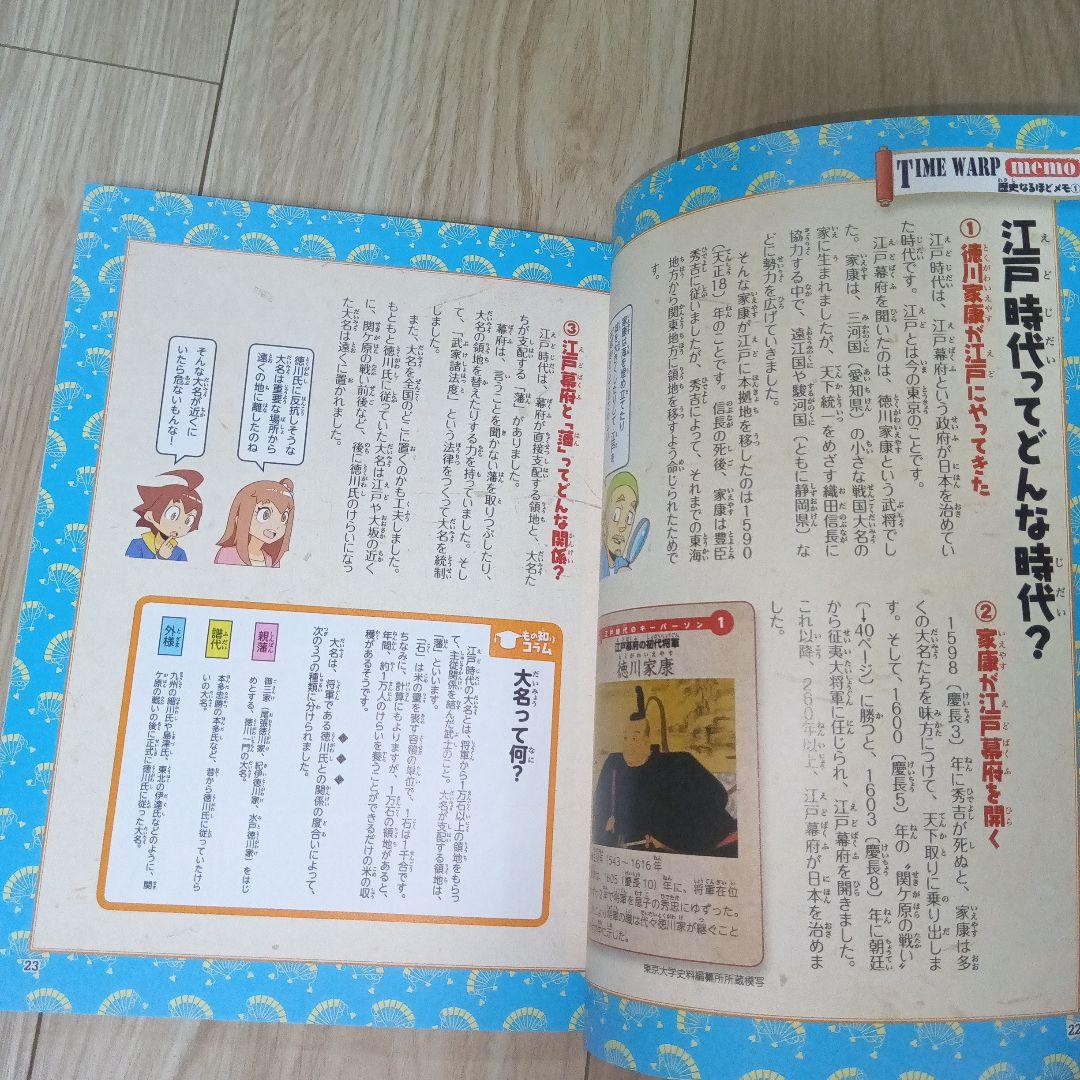 TIME WARP memo
歴史なるほどメモ①
江戸時代ってどんな時代?
①徳川家康が江戸にやってきた
江戸時代は、江戸幕府という政府が日本を治めてい
た時代です。江戸とは今の東京のことです。
江戸幕府を開いたのは、徳川家康という武将でし
た。家康は、三河国(愛知県)の小さな戦国大名の
家に生まれましたが、天下統一をめざす織田信長に
協力する中で、遠江国や駿河国(ともに静岡県)な
どに勢力を広げていきました。
そんな家康が江戸に本拠地を移したのは1590
(天正18)年のことです。信長の死後、家康は豊臣
秀吉に従いましたが、秀吉によって、それまでの東海
地方から関東地方に領地を移すよう命じられたためで
す。
②家康が江戸幕府を開く
1598(慶長3)年に秀吉が死ぬと、家康は多
くの大名たちを味方につけて、天下取りに乗り出しま
す。そして、1600(慶長5)年の“関ケ原の戦い”
(→40ページ)に勝つと、1603(慶長8)年に朝廷
から征夷大将軍に任じられ、江戸幕府を開きました。
これ以降、260年以上、江戸幕府が日本を治めま
した。
江戸時代のキーパーソン 1
江戸幕府の初代将軍
徳川家康
1543~1616年
1605(慶長10)年に、将軍在位
で将軍を息子の秀忠にゆずった。
の職は代々徳川家が継ぐこと
を示した。
東京大学史料編纂所所蔵模写
22
③江戸幕府と「藩」ってどんな関係?
江戸時代は、幕府が直接支配する領地と、大名た
ちが支配する「藩」がありました。
幕府は、言うことを聞かない藩を取りつぶしたり、
大名の領地を替えたりする力を持っていました。そし
て、「武家諸法度」という法律をつくって大名を統制
しました。
また、大名を全国のどこに置くのかも工夫しました。
もともと徳川氏に従っていた大名は江戸や大坂の近く
に、関ケ原の戦い前後など、後に徳川氏のけらいになっ
た大名は遠くに置かれました。
徳川氏に反抗しそうな
大名は重要な場所から
遠くの地に離したのね
そんな大名が近くに
いたら危ないもんな!
もの知りコラム
大名って何?
江戸時代の大名とは、将軍から1万石以上の領地をもらっ
て、主従関係を結んだ武士のこと。大名が支配する領地は、
「藩」といいます。
「石」は米の量を表す容積の単位で、1石は1千合です。
ちなみに、計算にもよりますが、1万石の領地があると、
年間、約1万人のけらいを養うことができるだけの米の収
穫があるそうです。
◆◆◆
大名は、将軍である徳川氏との関係の度合いによって、
次の3つの種類に分けられました。
親藩
御三家(尾張徳川家、紀伊徳川家、水戸徳川家)をはじ
めとする、徳川一門の大名。
譜代
本多忠勝の本多氏など、昔から徳川氏に従っていたけら
いの大名。
外様
九州の細川氏や島津氏、東北の伊達氏などのように、関
ケ原の戦いの後に正式に徳川氏に従った大名。
23